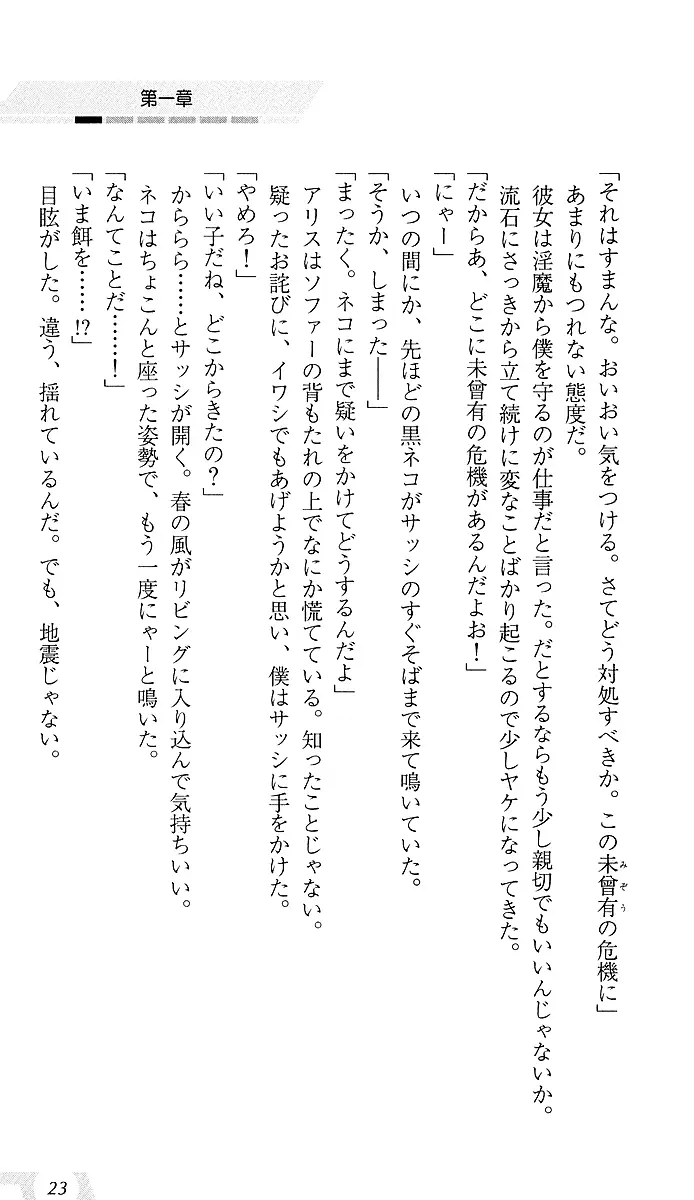 第一章
「それはすまんな。おいおい気をつける。さてどう対処すべきか。この未曾有の危機に」
みぞう
あまりにもつれない態度だ。
彼女は淫魔から僕を守るのが仕事だと言った。だとするならもう少し親切でもいいんじゃないか。
流石にさっきから立て続けに変なことばかり起こるので少しヤケになってきた。
「だからあ、どこに未曾有の危機があるんだよお！」
「にゃー」
いつの間にか、先ほどの黒ネコがサッシのすぐそばまで来て鳴いていた。
「そうか、しまった――」
「まったく。ネコにまで疑いをかけてどうするんだよ」
アリスはソファーの背もたれの上でなにか慌てている。知ったことじゃない。
疑ったお詫びに、イワシでもあげようかと思い、僕はサッシに手をかけた。
「やめろ！」
「いい子だね、どこからきたの？」
からららら……とサッシが開く。春の風がリビングに入り込んで気持ちいい。
ネコはちょこんと座った姿勢で、もう一度にゃーと鳴いた。
「なんてことだ……！」
「いま餌を……!?」
目眩がした。違う、揺れているんだ。でも、地震じゃない。
23